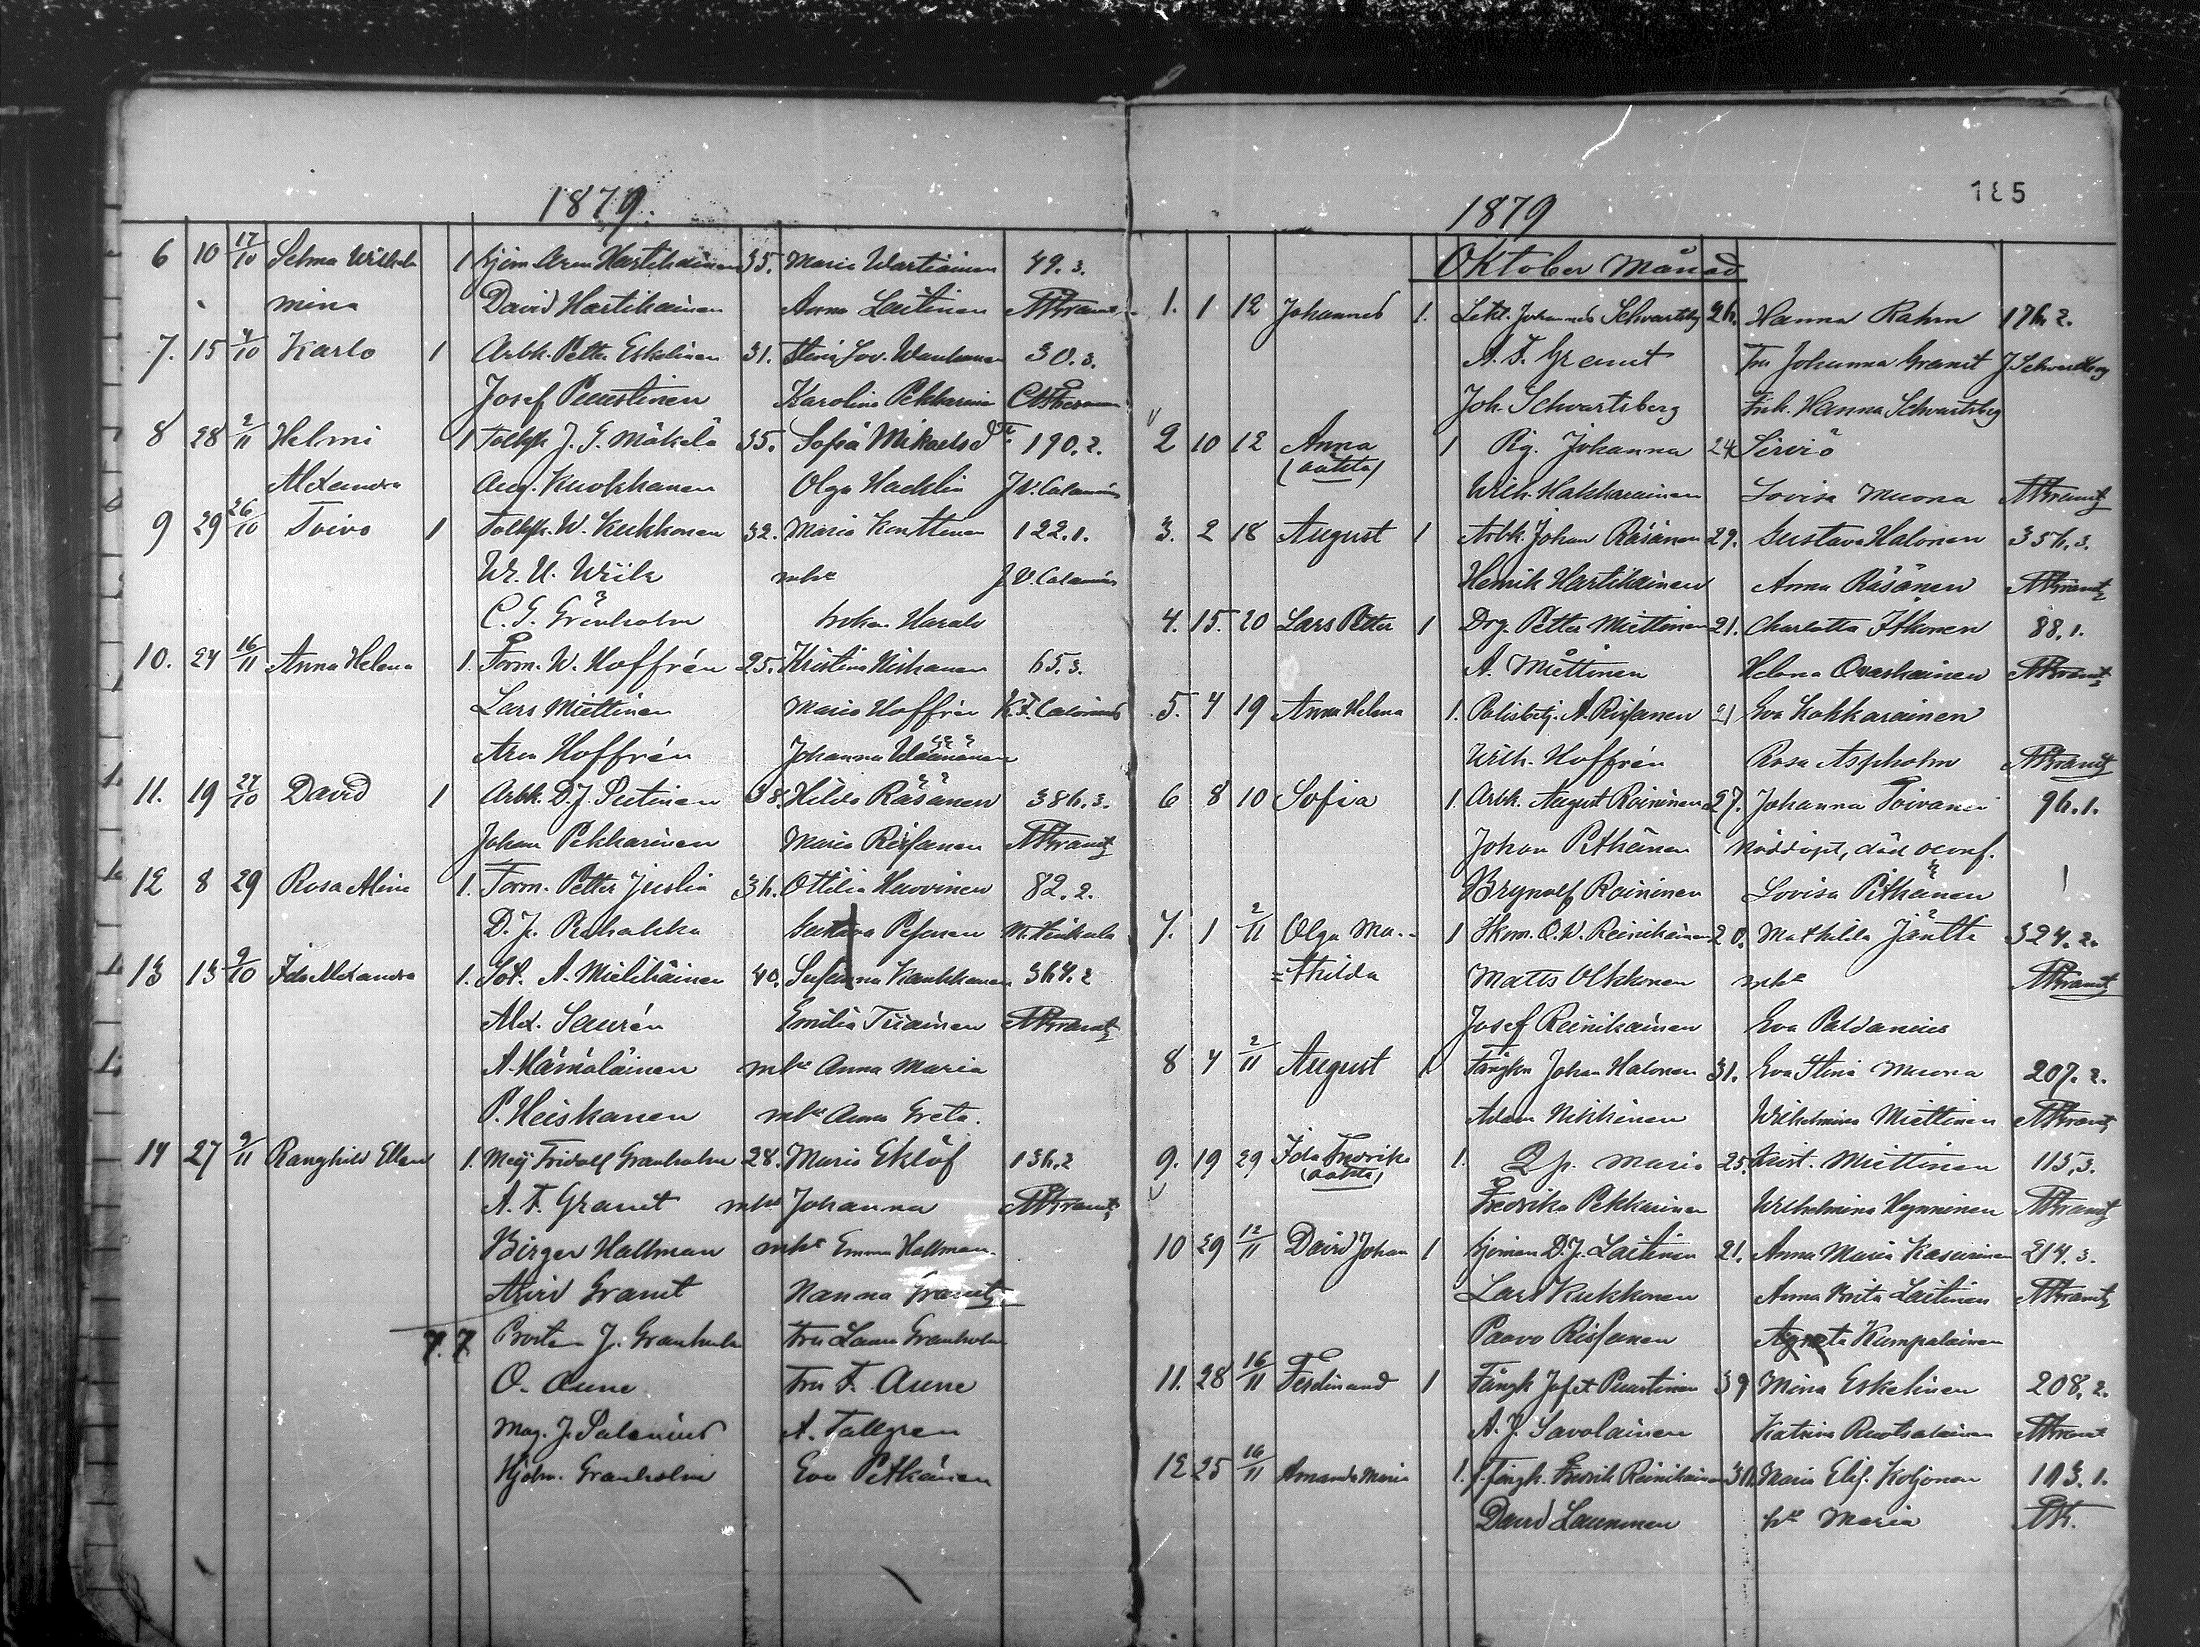 1879.
6 10 17/10 Selma Wilhel 1 Hjon. Aron Hartikainen 35. Maria Wartiainen 49.3.
mina David Hartikainen Anna Laitinen
7. 15 4/10 Karlo 1 Arbk. Petter Eskelinen 31. Stina Lov. 30.3.
Josef Puustinen Karolina Pekkarinen
8 28 2/11 Helmi 1 J. G. Mäkelä 35. Sofia Mikaelsd Fr 190.2.
Alexandra Aug. Kuokkanen Olga Hacklin J. V. Calamnius
9 29 26/10 Toivo 1 W. Kukkonen 32. Maria Konttinen 122.1.
W. U. Wiik mhu J. V. Calamnius
C. G. Grönholm
10. 24 16/11 Anna Helena 1. Torm. W. Hoffrén 25. Kristina Niskanen 65.3.
Lars Miettinen Maria Hoffrén K. F. Calamnius
Aron Hoffrén Johanna Wäänänen
11. 19 27/10 David 1 Arbk. D. J. Putinen 38. Hilda Räsänen 386.3.
Johan Pekkarinen Maria Rissanen A. F. Granit
12 8 29 Rosa Alina 1. Torm. Petter Juslin 36. Ottilia Huovinen 82.2.
D. J. Gustava Pesonen
13 13 9/10 Ida Alexandra 1. Sol. A. Mielikäinen 40. Susanna Kaukkanen 364.2
Alex. Saurén Emilia Tiiainen A. F. Granit
A. Hämäläinen mhu Anna Maria
P. Heiskanen mhu Anna Greta.
14 27 9/11 Ranghild Ellen 1. Fridolf Granholm 28. Maria Eklöf 136.2
A. F. Granit mhu Johanna A. F. Granit
Birger Hallman mhu Emma Hallman
Arvid Granit Nanna Granit
7. 7. J. Granholm Fru Laura Granholm
O. Aune Fru F. Aune
Mag. J. Salenius A. Tallgren
Hjalm. Granholm Eva Pitkänen
185
1879
Oktober Månad
1. 1 12 Johannes 1. Lekt. Johannes Schvartsberg 26. Hanna Rahm 176.2.
A. F. Granit Fru Johanna Granit J. Schvartsberg
Joh. Schvartsberg Frk. Hanna Schvartsberg
2 10 12 Anna 1 Pig. Johanna 24 Sirviö
(oäkta) Wilh. Kakkarainen Lovisa Muona A. F. Granit
3. 2 18 August 1 Arbk. Johan Räsänen 29. Gustava Halonen 356.3.
Henrik Hartikainen Anna Räsänen A. F. Granit
4. 15. 20 Lars Petter 1 Drg. Petter Miettinen 21. Charlotta Itkonen 88.1.
A. Miettinen Helena Ovaskainen A. F. Granit
5. 4 19 Anna Helena 1. Polisbetj. A. Rissanen 21 Eva Kakkarainen
Wilh. Hoffrén Rosa Aspholm A. F. Granit
6 8 10 Sofia 1. Arbk. August Roininen 27. Johanna Toivanen 96.1.
Johan Pitkänen Nöddöpt, död oconf.
Brynolf Roininen Lovisa Pitkänen
7. 1 2/11 Olga Ma- 1 Skom. O. W. Reinikainen 20. Mathilda Jäntti 324.2.
=thilda Matts Olkkonen mhu A. F. Granit
Josef Reinikainen Eva Paldanius
8 4 2/11 August 1 Fångkn Johan Halonen 31. Eva Stina Muona 207.2.
Adam Nikkinen Wilhelmina Miettinen A. F. Granit
9. 19 29 Ida Fredrika 1. Qp. Maria 25. Krist. Miettinen 115.3.
(oäkta) Fredrika Pekkarinen Wilhelmina Hynninen A. F. Granit
10 29 12/11 David Johan 1 Hjoman D. J. Laitinen 21. Anna Maria Kasurinen 214.3.
Lars Kukkonen Anna Brita Laitinen A. F. Granit
Paavo Rissanen Agneta Kumpulainen
11. 28 16/11 Ferdinand 1 Fångk Josef Puustinen 39 Mina Eskelinen 208.2.
A. J. Savolainen Katrina Ruotsalainen A. F. Granit
12 25 16/11 Amanda Maria 1. f. fångk. Fredrik Reinikainen Maria Elis. Koljonen 113.1.
David Launonen Maria